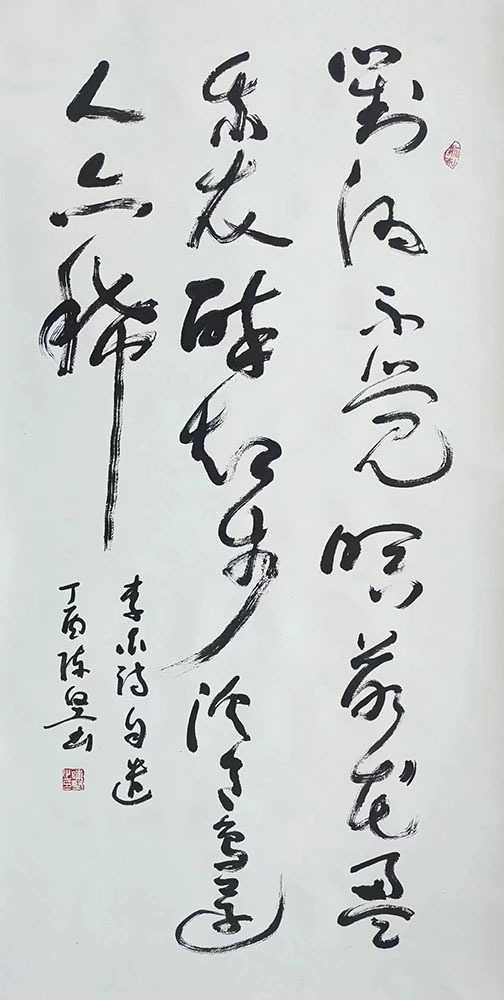 對酒不覺暝落花盈
我衣醉起步溪月鳥還
人亦稀
李白詩自遣
丁酉陳书